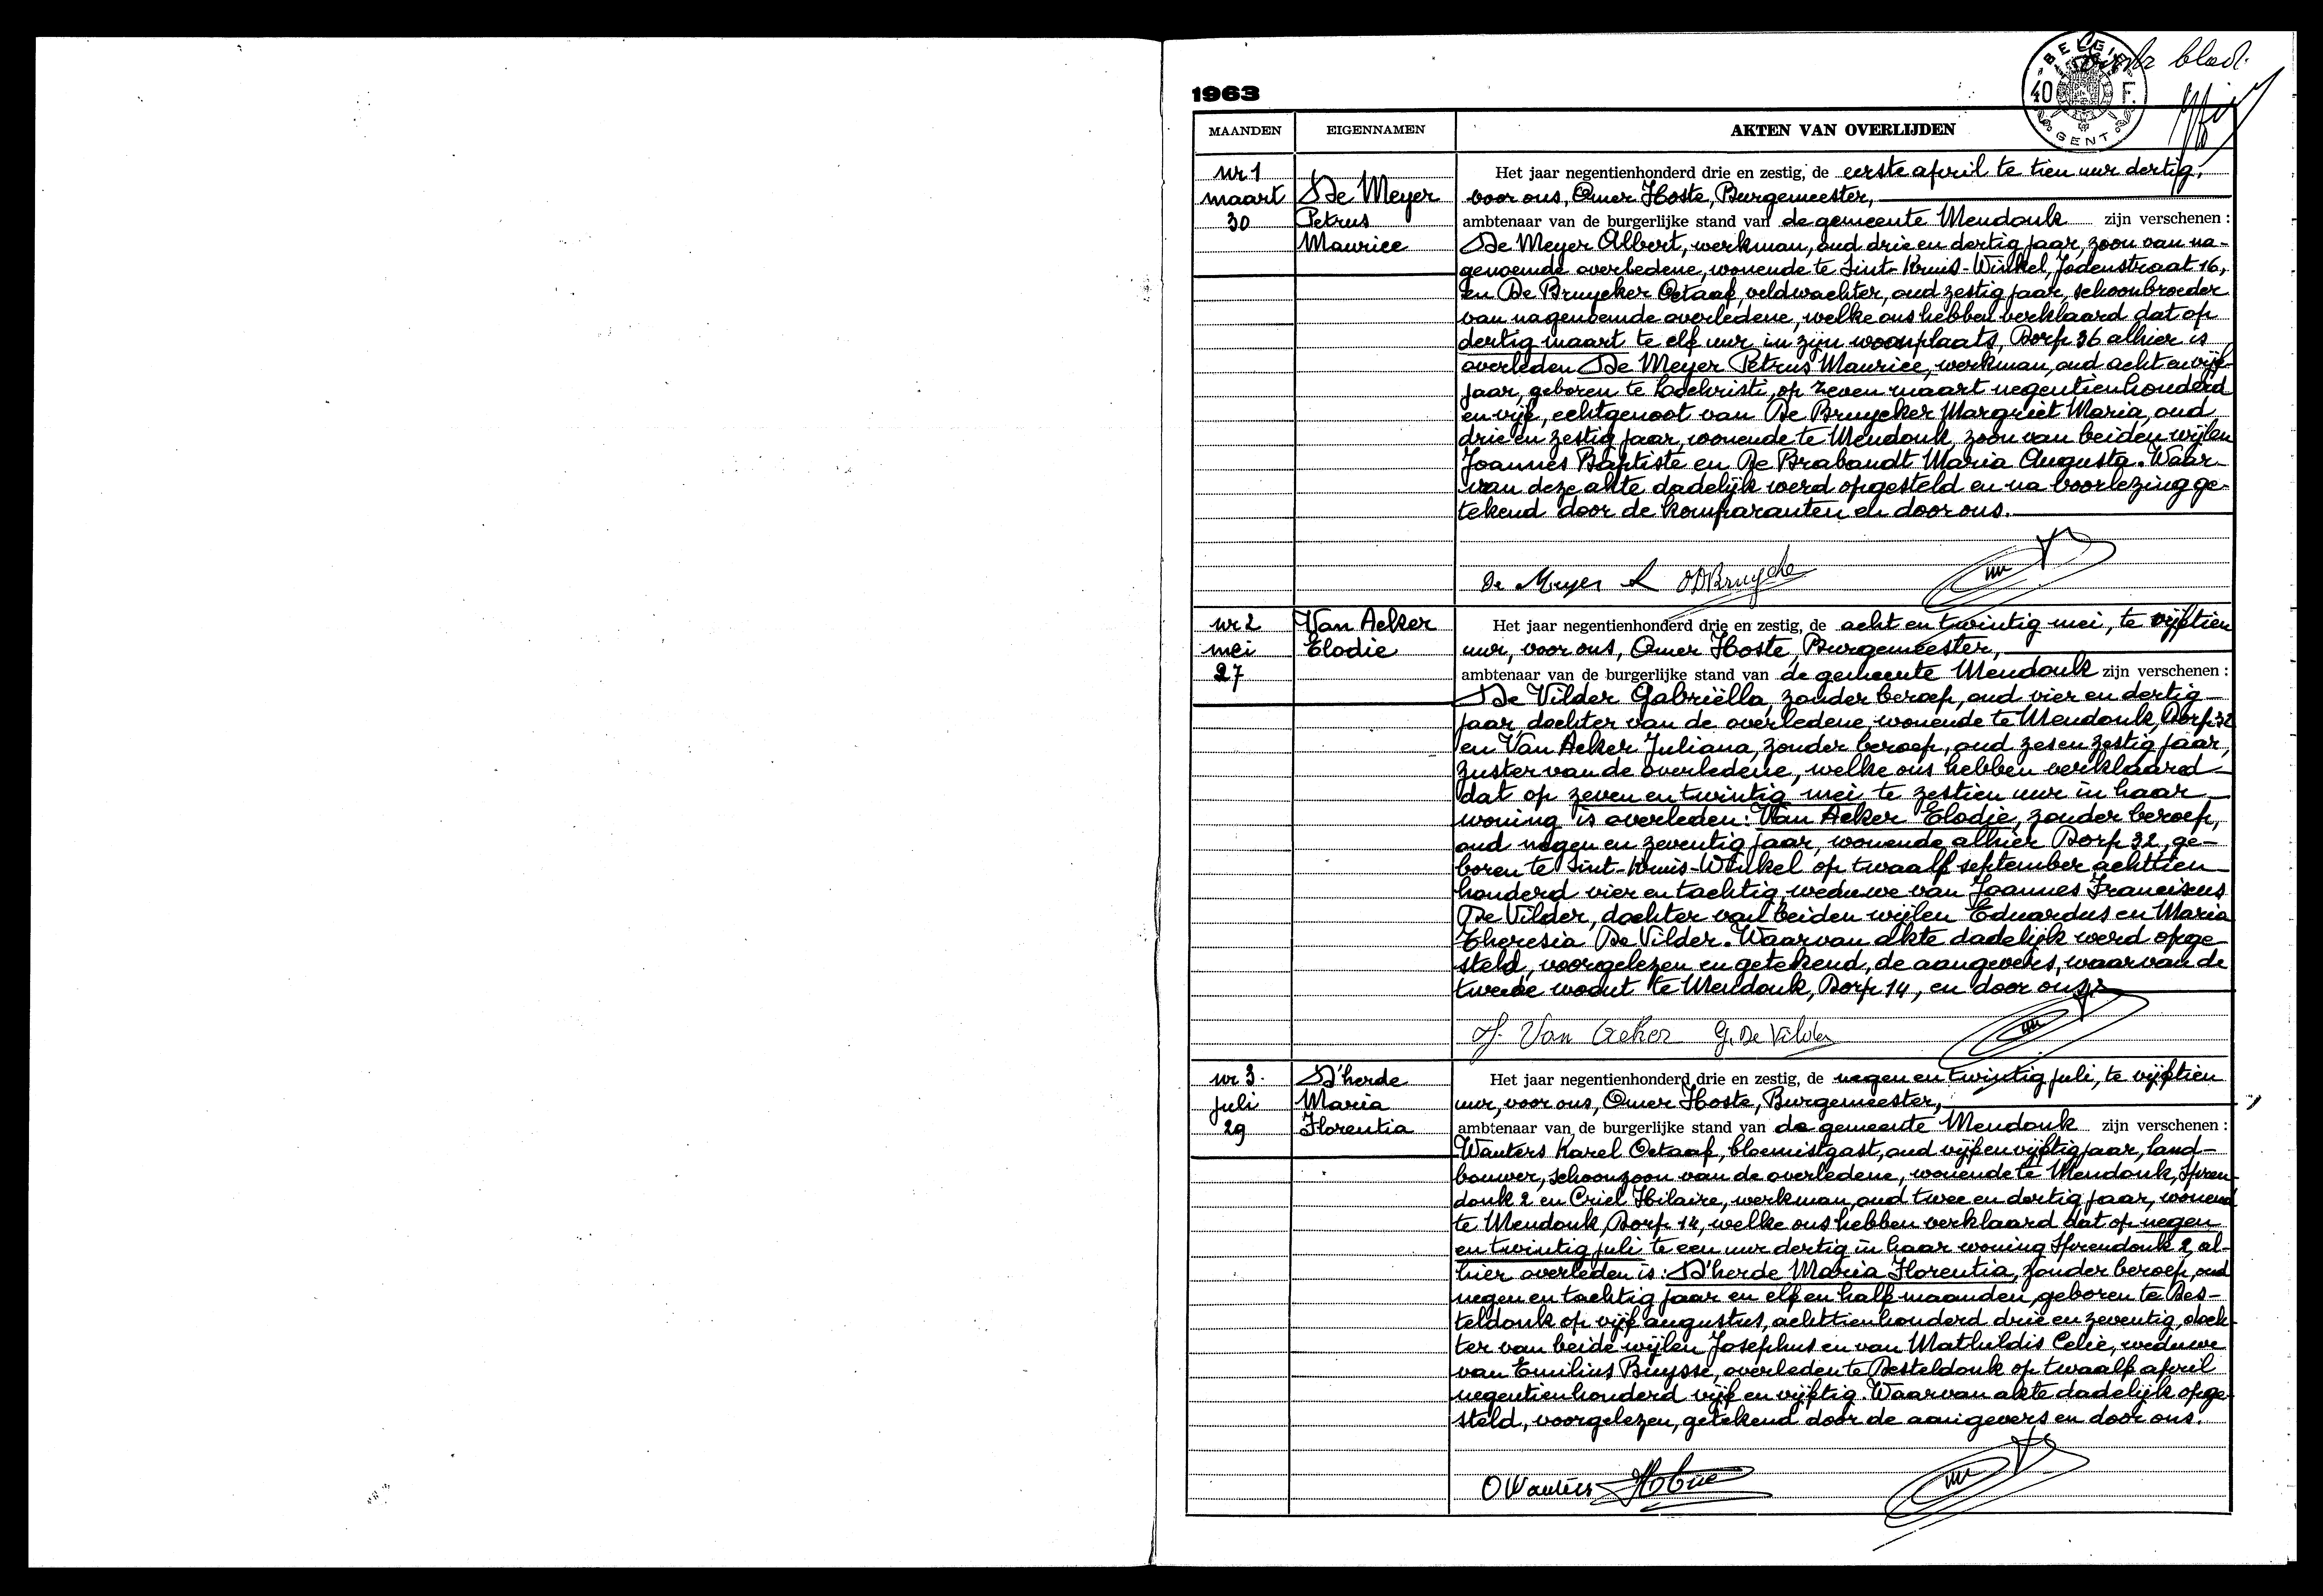 Eerste blad.
BELGIE
40 F.
GENT
1963
MAANDEN EIGENNAMEN AKTEN VAN OVERLIJDEN
nr 1
maart
30
De Meyer
Petrus
Maurice
Het jaar negentienhonderd drie en zestig, de eerste april te tien uur dertig,
voor ons, Omer Hoste, Burgemeester,
ambtenaar van de burgerlijke stand van de gemeente Mendonk zijn verschenen :
De Meyer Albert, werkman, oud drie en dertig jaar, zoon van na-
genoemde overledene, wonende te Sint-Kruis-Winkel, Jodenstraat 16,
en De Bruycker Octaaf, veldwachter, oud zestig jaar, schoonbroeder
van nagenoemde overledene, welke ons hebben verklaard dat op
dertig maart te elf uur in zijn woonplaats, Dorp 36 alhier is
overleden De Meyer Petrus Maurice, werkman, oud acht en vijf-
jaar, geboren te Lochristi, op zeven maart negentienhonderd
en vijf, echtgenoot van De Bruycker Margriet Maria, oud
drie en zestig jaar, wonende te Mendonk, zoon van beiden wijlen
Joannes Baptiste en De Brabandt Maria Augusta. Waar-
van deze akte dadelijk werd opgesteld en na voorlezing ge-
tekend door de komparanten en door ons.
De Meyer A ODBruycke
nr 2
mei
27
Van Acker
Elodie
Het jaar negentienhonderd drie en zestig, de acht en twintig mei, te vijftien
uur, voor ons, Omer Hoste, Burgemeester,
ambtenaar van de burgerlijke stand van de gemeente Mendonk zijn verschenen :
De Vilder Gabriëlla, zonder beroep, oud vier en dertig
jaar, dochter van de overledene, wonende te Mendonk, Dorp 32
en Van Acker Juliana, zonder beroep, oud zes en zestig jaar,
zuster van de overledene, welke ons hebben verklaard
dat op zeven en twintig mei te zestien uur in haar
woning is overleden: Van Acker Elodie, zonder beroep,
oud negen en zeventig jaar, wonende alhier Dorp 32, ge-
boren te Sint-Kruis-Winkel op twaalf september achttien
honderd vier en tachtig, weduwe van Joannes Franciscus
De Vilder, dochter van beiden wijlen Eduardus en Maria
Theresia De Vilder. Waarvan akte dadelijk werd opge-
steld, voorgelezen en getekend, de aangevers, waarvan de
tweede woont te Mendonk, Dorp 14, en door ons.
J. Van Acker G. De Vilder
nr 3.
juli
29
D'herde
Maria
Florentia
Het jaar negentienhonderd drie en zestig, de negen en twintig juli, te vijftien
uur, voor ons, Omer Hoste, Burgemeester,
ambtenaar van de burgerlijke stand van de gemeente Mendonk zijn verschenen :
Wauters Karel Octaaf, bloemistgast, oud vijf en vijftig jaar, land-
bouwer, schoonzoon van de overledene, wonende te Mendonk, Spren-
donk 2 en Criel Hilaire, werkman, oud twee en dertig jaar, wonend
te Mendonk, Dorp 14, welke ons hebben verklaard dat op negen
en twintig juli te een uur dertig in haar woning Sprendonk 2 al-
hier overleden is: D'herde Maria Florentia, zonder beroep, oud
negen en tachtig jaar en elf en half maanden, geboren te Des-
teldonk op vijf augustus, achttienhonderd drie en zeventig, doch-
ter van beide wijlen Josephus en van Mathildis Celie, weduwe
van Emilius Buysse, overleden te Desteldonk op twaalf april
negentienhonderd vijf en vijftig. Waarvan akte dadelijk opge-
steld, voorgelezen, getekend door de aangevers en door ons.
O Wauters